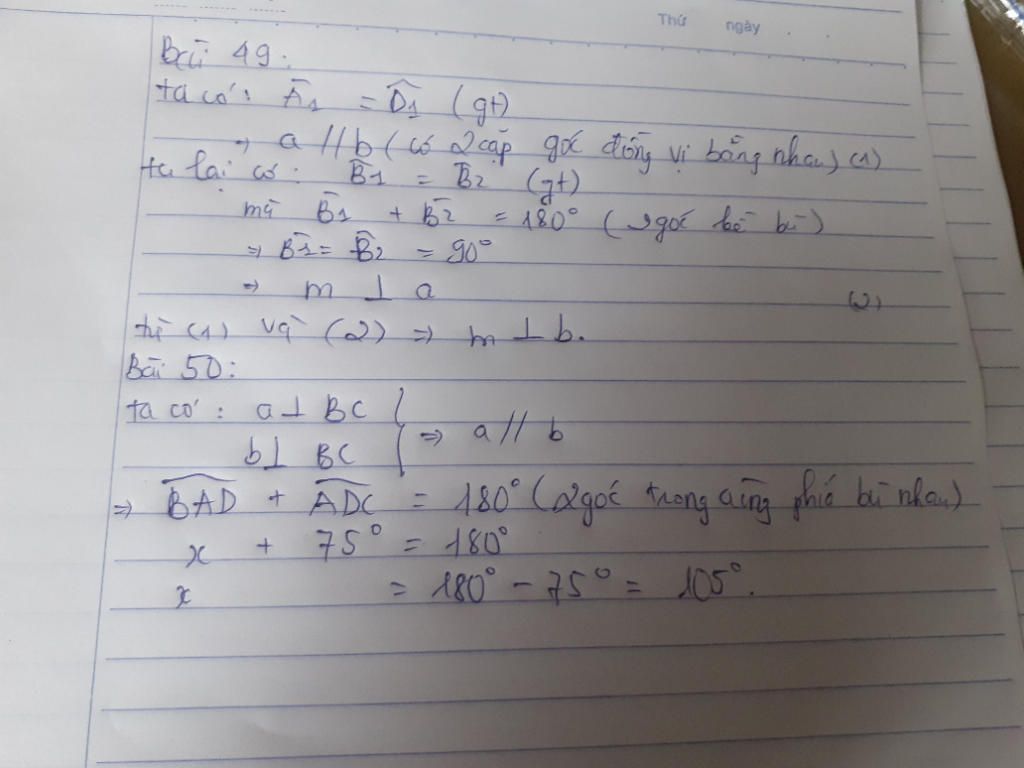 Thứ ngày
Bài 49:
ta có: Â1 = D̂1 (gt)
→ a // b (có 2 cặp góc đồng vị bằng nhau) (1)
ta lại có: B̂1 = B̂2 (gt)
mà B̂1 + B̂2 = 180° (2 góc kề bù)
⇒ B̂1 = B̂2 = 90°
⇒ m ⊥ a (2)
từ (1) và (2) ⇒ m ⊥ b.
Bài 50:
ta có: a ⊥ BC
b ⊥ BC } ⇒ a // b
⇒ BAD + ADC = 180° (2 góc trong cùng phía bù nhau)
x + 75° = 180°
x = 180° - 75° = 105°.